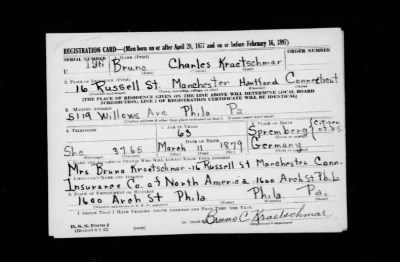 REGISTRATION CARD—(Men born on or after April 28, 1877 and on or before February 16, 1897)
SERIAL NUMBER 1. NAME (Print) ORDER NUMBER
U 196 Bruno Charles Kraetschmar
(First) (Middle) (Last)
2. PLACE OF RESIDENCE (Print)
16 Russell St. Manchester Hartford Connecticut
(Number and street) (Town, township, village, or city) (County) (State)
[THE PLACE OF RESIDENCE GIVEN ON THE LINE ABOVE WILL DETERMINE LOCAL BOARD
JURISDICTION; LINE 2 OF REGISTRATION CERTIFICATE WILL BE IDENTICAL]
3. MAILING ADDRESS
5119 Willows Ave Phila Pa
4. TELEPHONE 5. AGE IN YEARS 6. PLACE OF BIRTH
63 Spremberg
DATE OF BIRTH
She 3765 March 11 1879 Germany
7. NAME AND ADDRESS OF PERSON WHO WILL ALWAYS KNOW YOUR ADDRESS
Mrs Bruno Kraetschmar - 16 Russell St Manchester Conn.
8. EMPLOYER'S NAME AND ADDRESS
Insurance Co. of North America 1600 Arch St Phila
9. PLACE OF EMPLOYMENT OR BUSINESS
1600 Arch St Phila Phila Pa.
I AFFIRM THAT I HAVE VERIFIED ABOVE ANSWERS AND THAT THEY ARE TRUE.
Bruno C Kraetschmar
D. S. S. Form 1
(over)